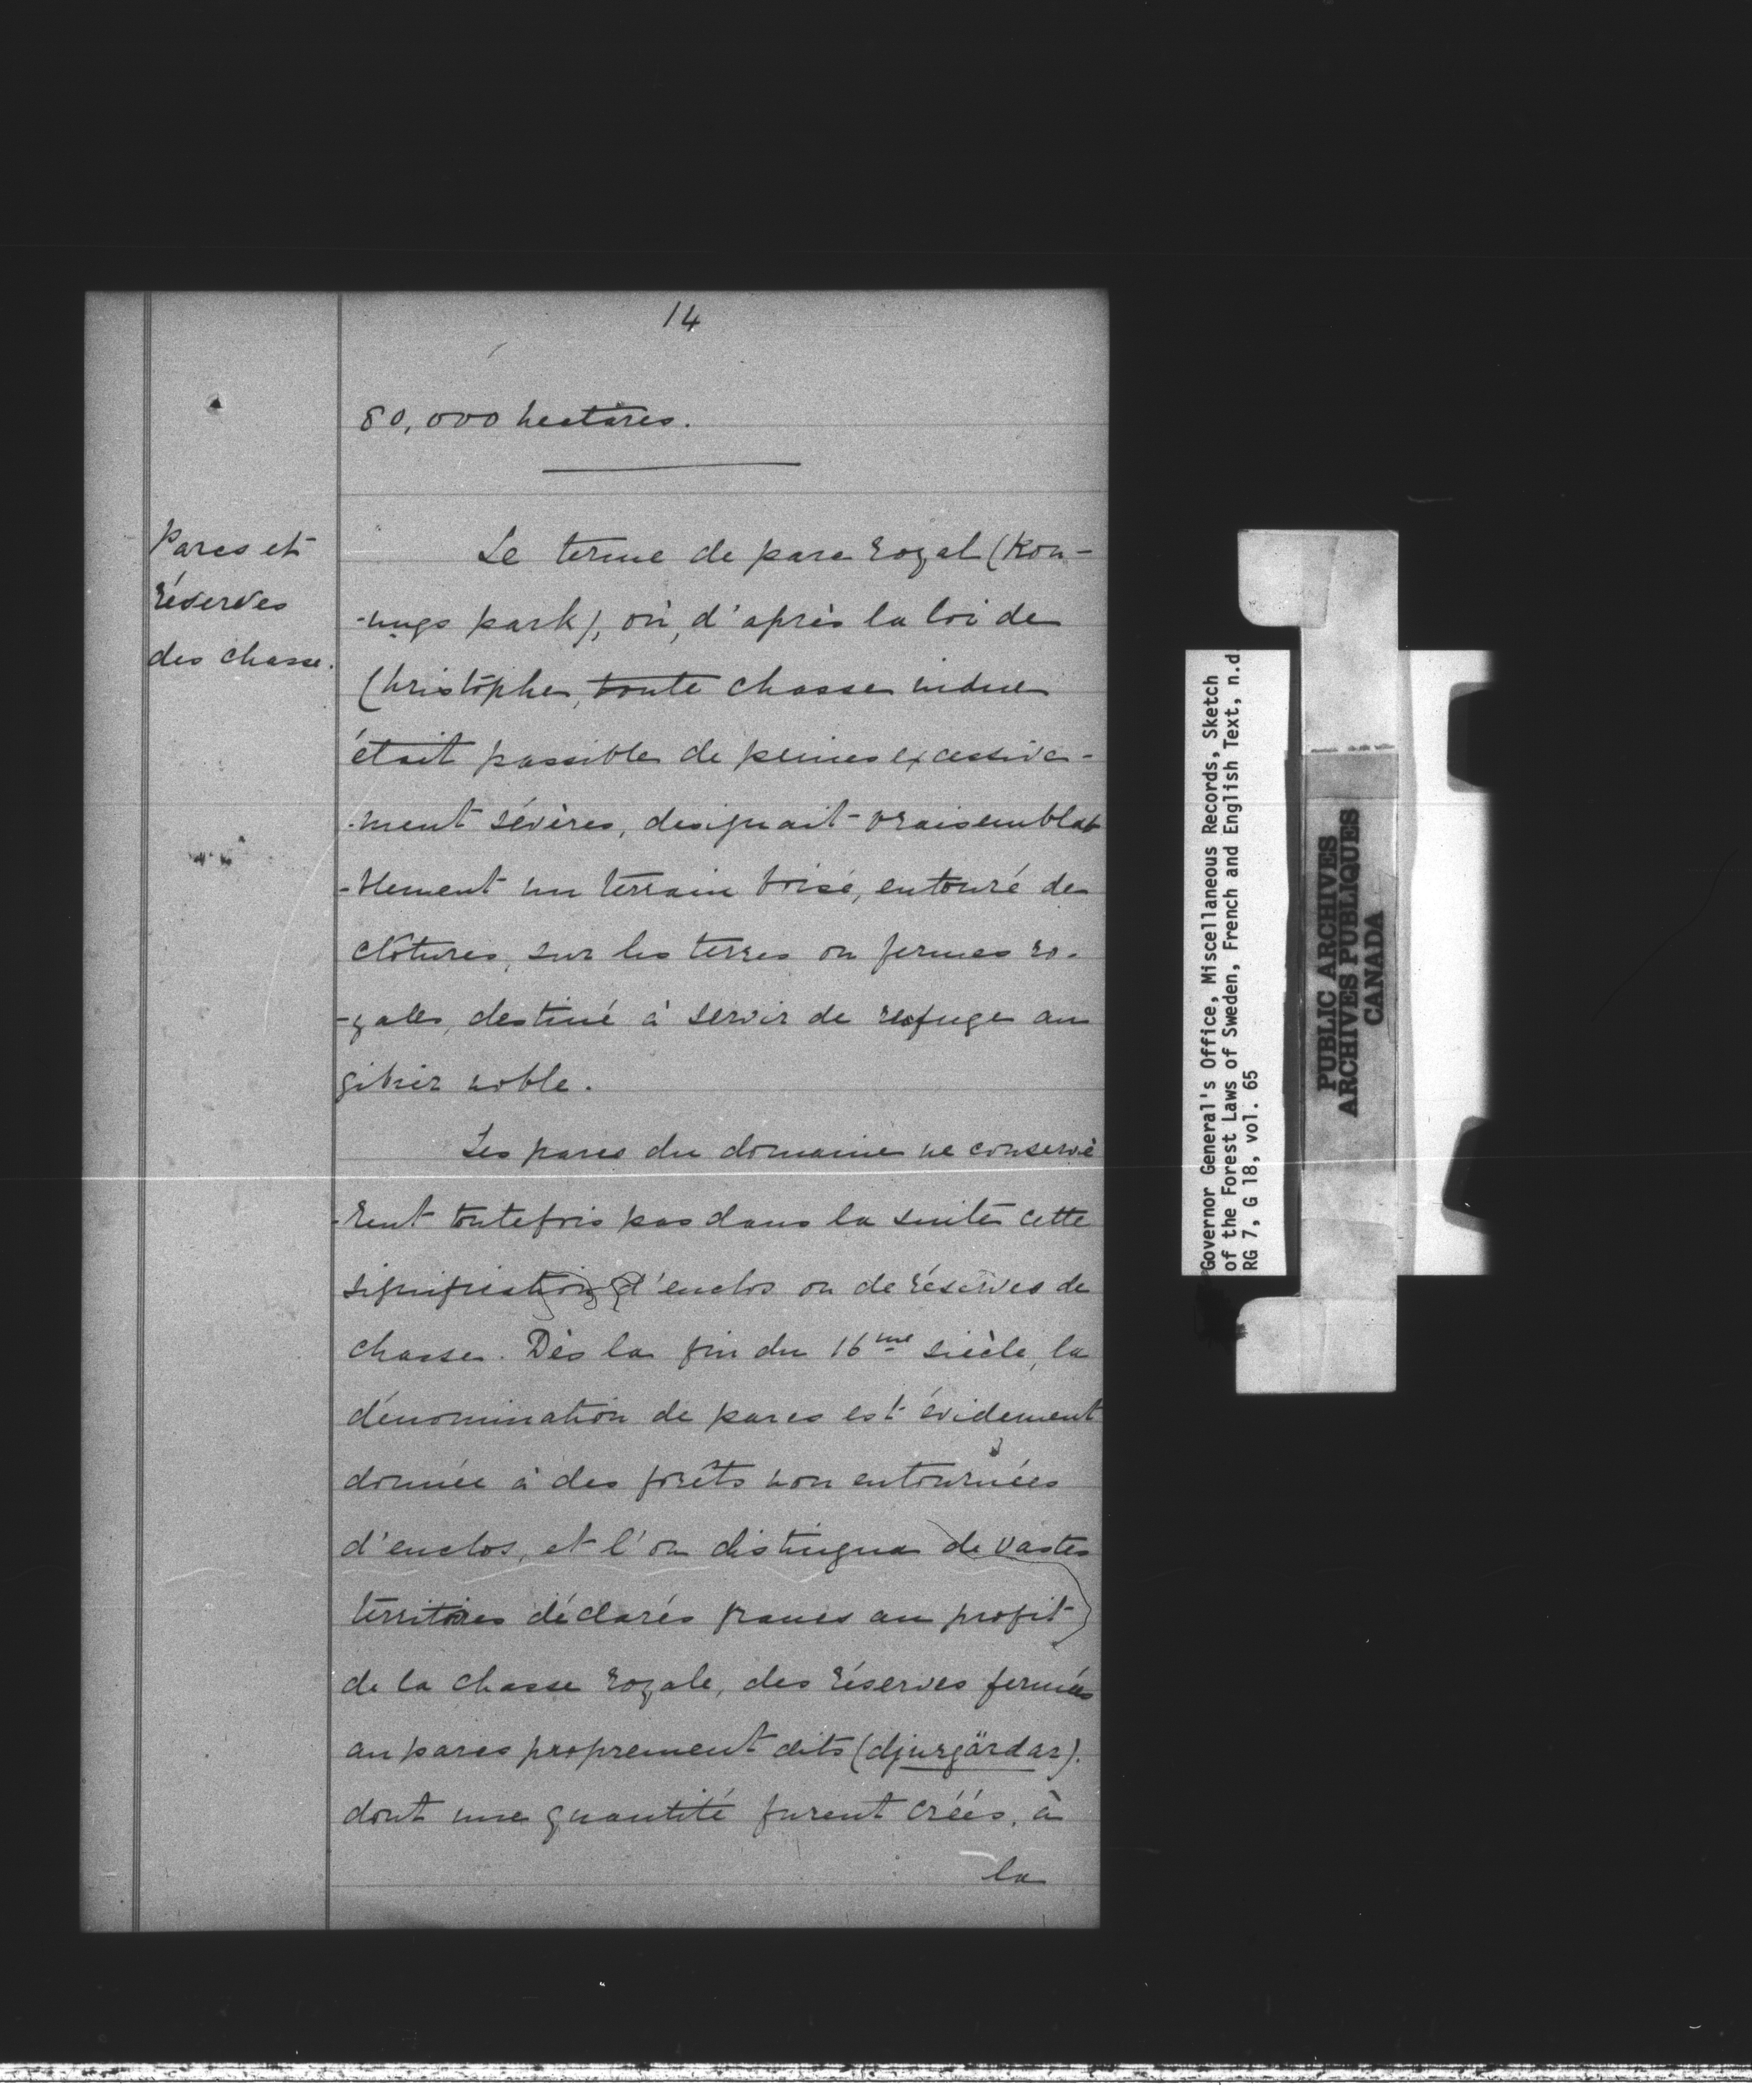 14
80,000 hectares.
Parcs et
réserves
des chasse.
Le terme de parc royal (Kon-
-ungs park), où, d'après la loi de
Christophe, toute chasse indue
était passible de peines excessive-
-ment sévères, designait vraisemblab
-blement un terrain boisé, entouré de
clôtures, sur les terres ou fermes ro-
-yales, destiné à servir de refuge au
gibier noble.
Les parcs du domaine ne conservè
-rent toutefois pas dans la suite cette
signification d'enclos ou de réserves de
chasse. Dès la fin du 16me siècle, la
dénomination de parcs est évidement
donnée à des forêts non entournées
d'enclos, et l'on distingua de vastes
territoires déclarés francs au profit
de la chasse royale, des réserves fermées
au parcs proprement dits (djurgärdar).
dont une quantité furent créés, à
la
Governor General's Office, Miscellaneous Records, Sketch
of the Forest Laws of Sweden, French and English Text, n.d
RG 7, G 18, vol. 65
PUBLIC ARCHIVES
ARCHIVES PUBLIQUES
CANADA